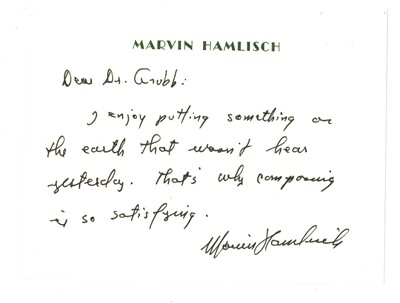 MARVIN HAMLISCH
Dear Dr. Grubb:
I enjoy putting something on
the earth that wasn't hear
yesterday. That's why composing
is so satisfying.
Marvin Hamlisch